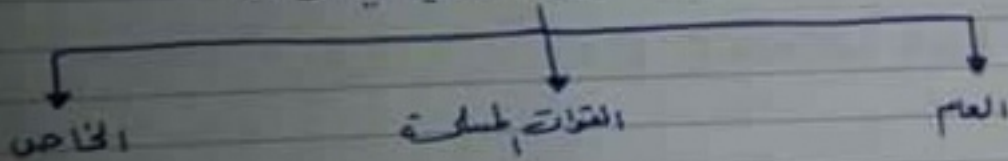 العام القوات المسلحة الخاص